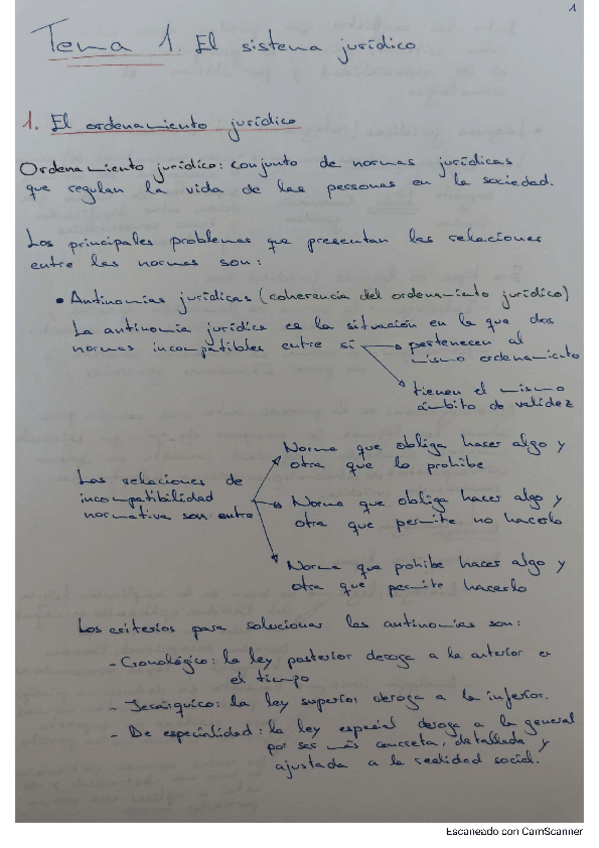 1
Tema 1. El sistema jurídico
1. El ordenamiento jurídico
Ordenamiento jurídico: conjunto de normas jurídicas
que regulan la vida de las personas en la sociedad.
Los principales problemas que presentan las relaciones
entre las normas son:
• Antinomias jurídicas (coherencia del ordenamiento jurídico)
La antinomia jurídica es la situación en la que dos
normas incompatibles entre sí → pertenecen al
mismo ordenamiento
→ tienen el mismo
ámbito de validez
Las relaciones de
incompatibilidad
normativa son entre
Norma que obliga hacer algo y
otra que lo prohibe
Norma que obliga hacer algo y
otra que permite no hacerlo
Norma que prohibe hacer algo y
otra que permite hacerlo
Los criterios para solucionar las antinomias son:
- Cronológico: la ley posterior deroga a la anterior en
el tiempo
- Jerárquico: la ley superior deroga a la inferior.
- De especialidad: la ley especial deroga a la general
por ser más concreta, detallada y
ajustada a la realidad social.
Escaneado con CamScanner